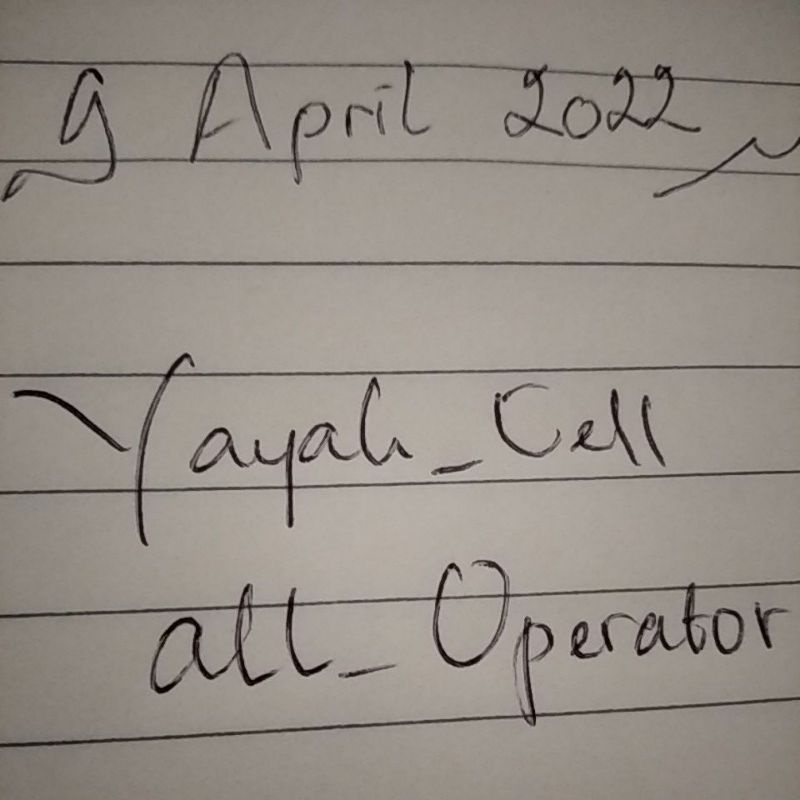 9 April 2022
Yayah_Cell
all_Operator